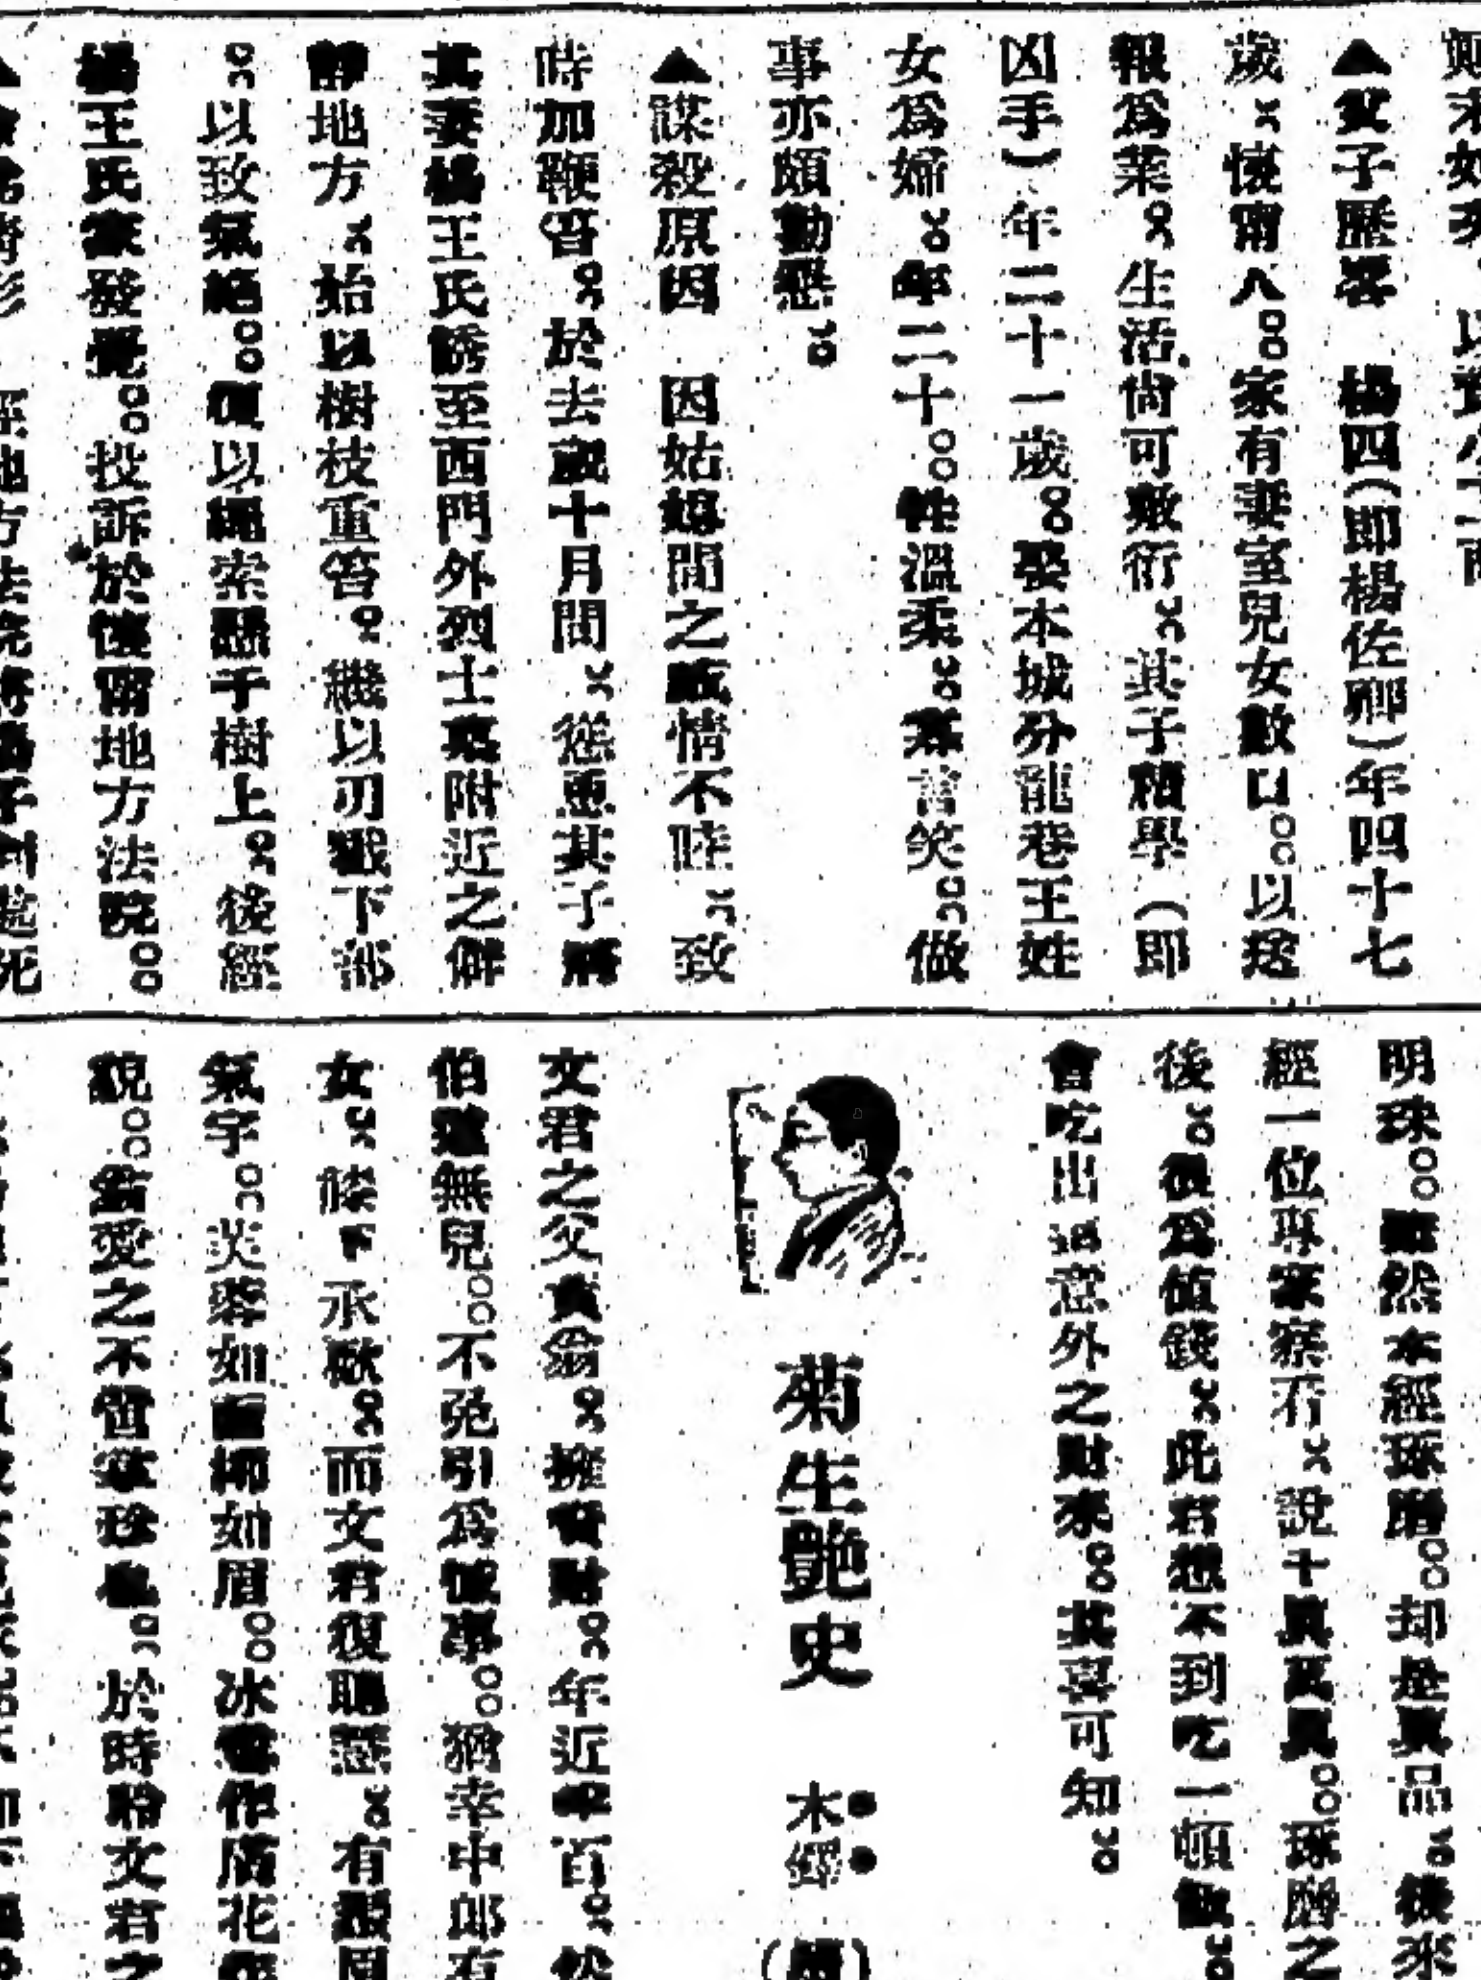 ▲父子歷畧　楊四（即楊佐卿）年四十七
歲。懷甯人。家有妻室兒女數口。以
爲業。生活尙可敷衍。其子積學（即
凶手）年二十一歲。娶本城分龍巷王姓
女爲婦。年二十。性溫柔。寡言笑。做
事亦頗勤懇。
▲謀殺原因　因姑媳間之感情不睦。致
時加鞭笞。於去歲十月間。慫恿其子將
其妻楊王氏誘至西門外烈士墓附近之僻
靜地方。始以樹枝重笞。繼以刃戳下部
。以致氣絕。復以繩索懸于樹上。後經
楊王氏家發覺。投訴於懷甯地方法院。
明珠。雖然未經琢磨。却是眞品。後來
經一位專家察看。說十眞萬眞。琢磨之
後。很爲値錢。此君想不到吃一頓飯。
會吃出意外之財來。其喜可知。
菊生艷史　木鐸
文君之父黃翁。擁資財。年近半百。然
伯道無兒。不免引爲憾事。猶幸中郎有
女。膝下承歡。而文君復聰慧。有
氣宇。芙蓉如面柳如眉。冰雪作膚花作
貌。翁愛之不啻掌珍。於時聆文君之